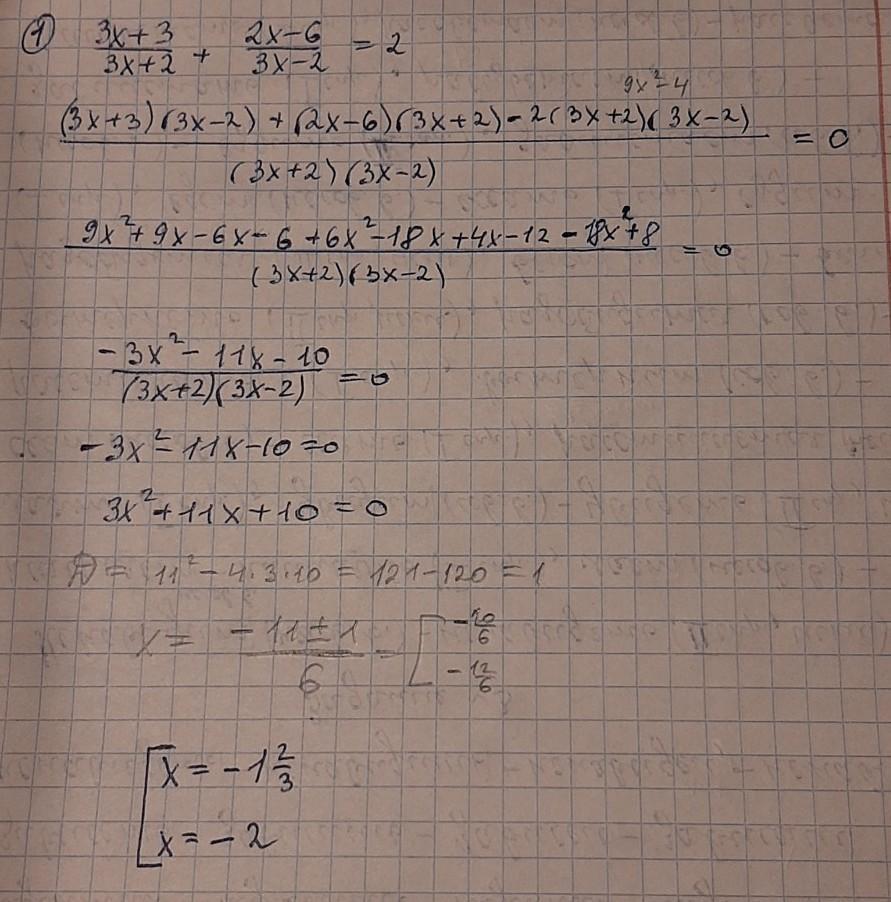 ① (3x+3)/(3x+2) + (2x-6)/(3x-2) = 2
9x²-4
((3x+3)(3x-2) + (2x-6)(3x+2) - 2(3x+2)(3x-2))/((3x+2)(3x-2)) = 0
(9x²+9x-6x-6+6x²-18x+4x-12-18x²+8)/((3x+2)(3x-2)) = 0
(-3x²-11x-10)/((3x+2)(3x-2)) = 0
-3x²-11x-10=0
3x²+11x+10=0
D = 11²-4·3·10 = 121-120 = 1
x = (-11±1)/6 = [ -10/6
-12/6
[ x = -1 2/3
x = -2